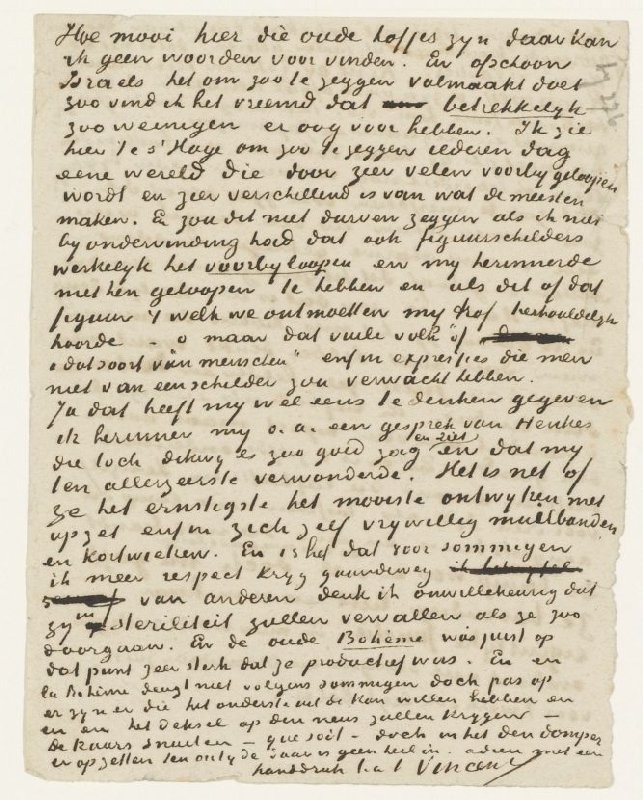 Hoe mooi hier die oude hofjes zyn daar kan
ik geen woorden voor vinden. En ofschoon
Israels het om zoo te zeggen volmaakt doet
zoo vind ik het vreemd dat betrekkelyk
zoo weinigen er oog voor hebben. Ik zie
hier te s'Hage om zoo te zeggen iederen dag
eene wereld die door zeer velen voorby geloopen
wordt en zeer verschillend is van wat de meesten
maken. En zou dit niet durven zeggen als ik niet
by ondervinding had dat ook figuurschilders
werkelyk het voorbyloopen en my herinnerde
met hen geloopen te hebben en als dit of dat
figuur 't welk we ontmoetten my trof herhaaldelyk
hoorde – o maar dat vuile volk" of
"dat soort van menschen" enfin expressies die men
niet van een schilder zou verwacht hebben.
Ja dat heeft my wel eens te denken gegeven
ik herinner my o.a. een gesprek van Henkes
die toch dikwyls zoo goed zag en ziet en dat my
ten allerzeerste verwonderde. Het is net of
ze het ernstigste het mooiste ontwyken met
opzet enfin zich zelf vrywillig muilbanden
en kortwieken. En is het dat voor sommigen
ik meer respect kryg gaandeweg
van anderen denk ik onwillekeurig dat
zy in steriliteit zullen vervallen als ze zoo
doorgaan. En de oude Bohème was juist op
dat punt zeer sterk dat ze productief was. En en
la Bohème deugt niet volgens sommigen doch pas op
er zyn er die het onderste uit de kan willen hebben en
en en het deksel op den neus zullen krygen –
de kaars snuiten – que soit – doch om het den domper
er op zetten ten ontyde daar is geen heil in. adieu met een
handdruk t. à t. Vincent